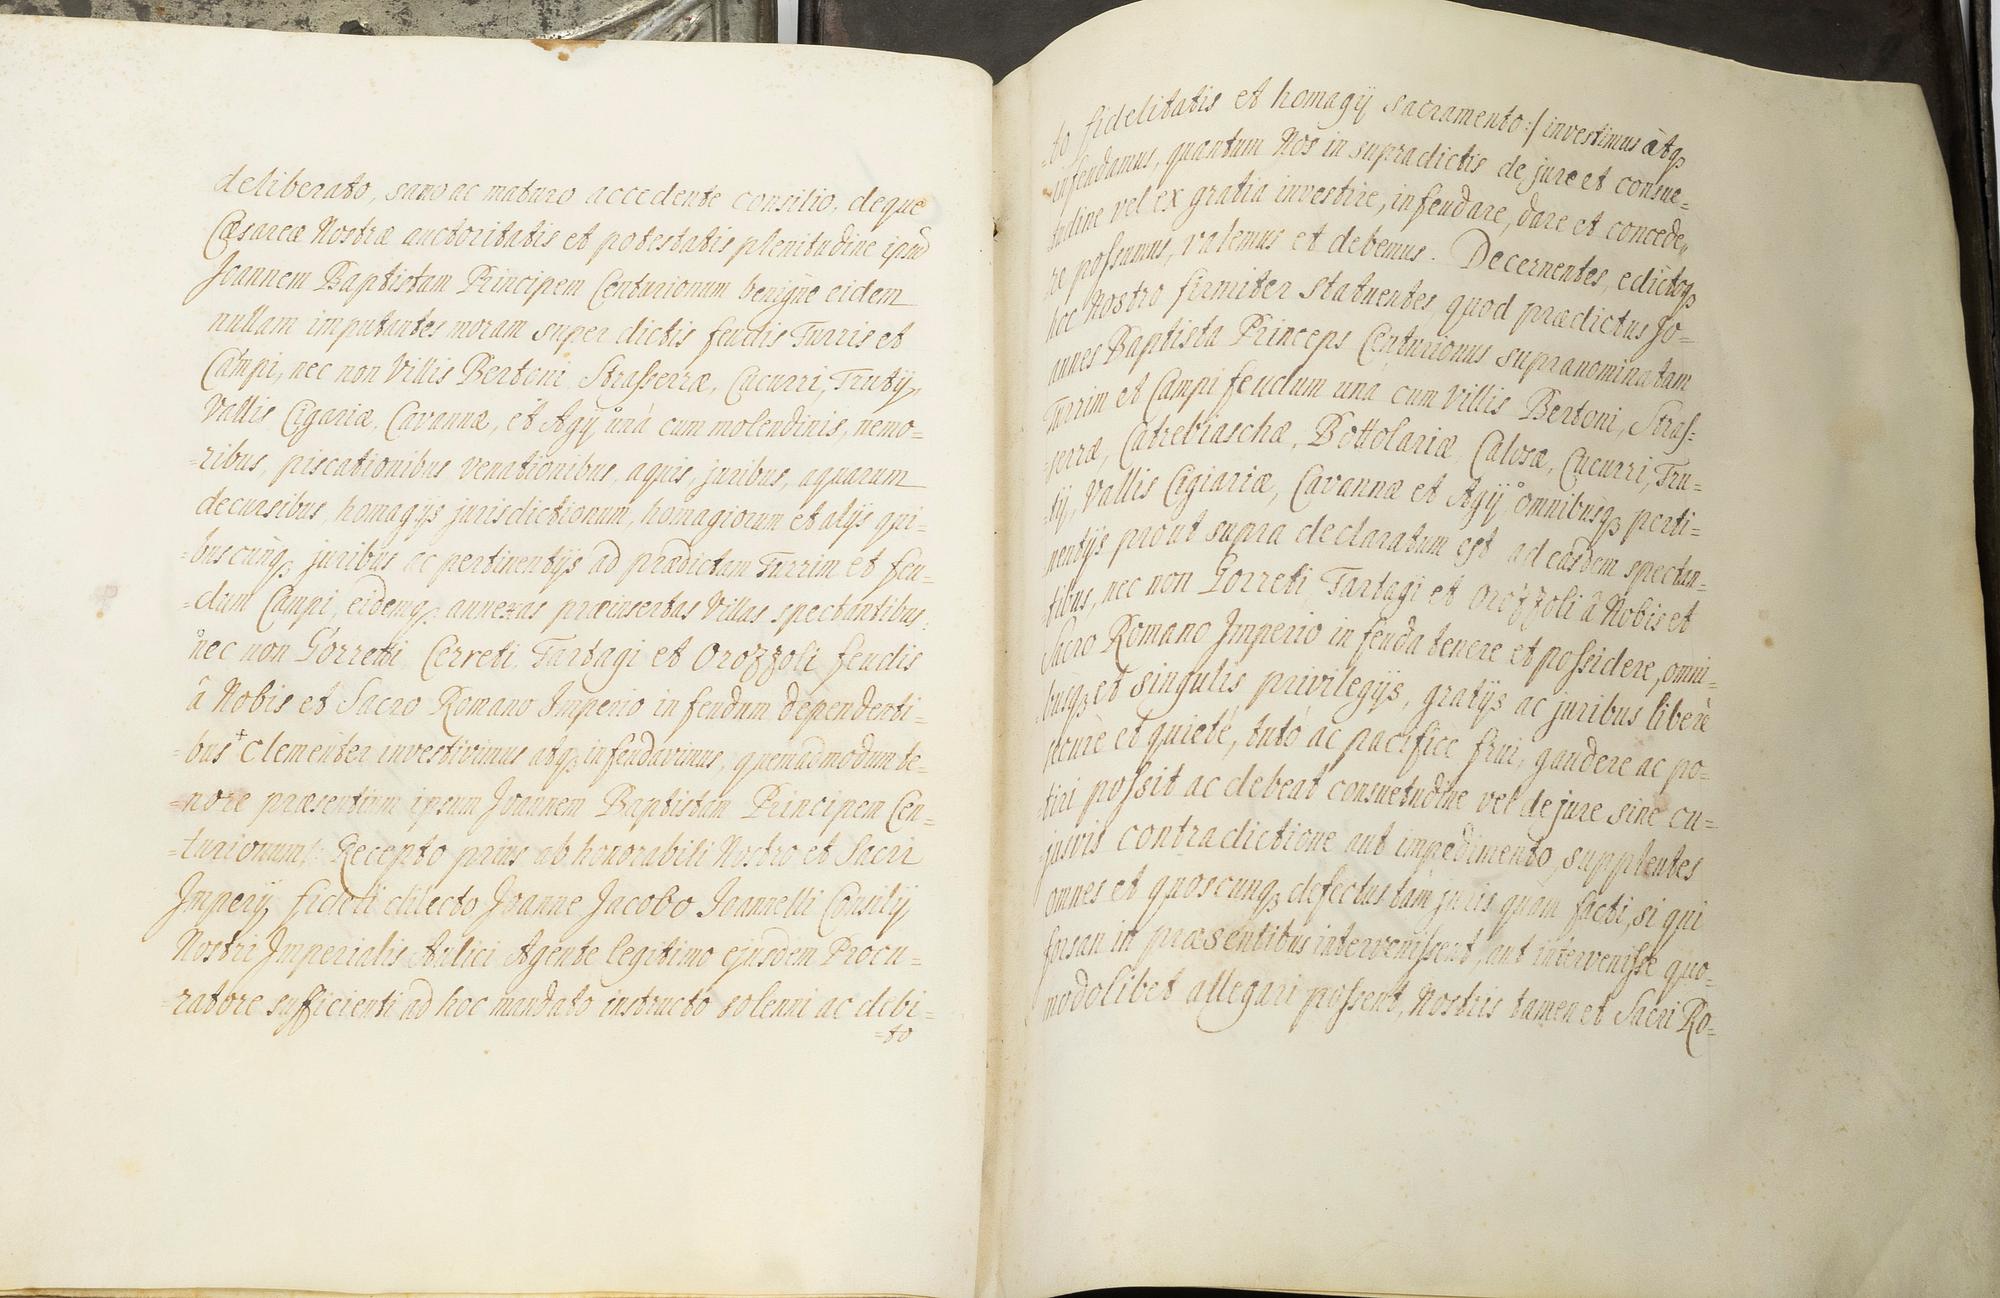 deliberato, sano ac maturo accedente consilio, deque
Cæsareæ Nostræ auctoritatis et potestatis plenitudine ipsū
Joannem Baptistam Principem Centurionum benignè eidem
nullam imputantes moram super dictis feudis Turris et
Campi, nec non Villis Bertoni Strasseræ, Cacurri, Trutÿ,
Vallis Cigariæ, Cavannæ, et Agÿ unà cum molendinis, nemo=
=ribus, piscationibus venationibus, aquis, juribus, aquarum
decursibus, homagÿs jurisdictionum, homagiorum et alÿs qui=
=buscunqꝫ juribus ac pertinentÿs ad prædictam Turrim et feu=
=dum Campi, eidemqꝫ annexas præinsertas Villas spectantibus,
nec non Gorreti Cerreti Tartagi et Orozzoli feudis
â Nobis et Sacro Romano Imperio in feudum dependenti=
=bus + Clementer investivimus atqꝫ infeudavimus, quemadmodum te=
=nore præsentium ipsum Joannem Baptistam Principem Cen=
=turionum /: Recepto prius ab honorabili Nostro et Sacri
Imperÿ fideli dilecto Joanne Jacobo Joannelli Consilÿ
Nostri Imperialis Aulici Agente legitimo ejusdem Procu=
=ratore sufficienti ad hoc mandato instructo solenni ac debi=
=to
=to fidelitatis et homagÿ sacramento :/ investimus atqꝫ
infeudamus, quantum Nos in supradictis de jure et consue=
tudine vel ex gratia investire, infeudare, dare et concede=
re possumus, valemus et debemus. Decernentes, edictoqꝫ
hoc Nostro firmiter statuentes, quod prædictus Jo=
annes Baptista Princeps Centurionus supranominatam
Turrim et Campi feudum unà cum Villis Bertoni, Stras=
=serræ, Catrebiaschæ, Bottolariæ, Calosæ, Cacurri, Tru=
=tÿ, Vallis Cigiariæ, Cavannæ et Agÿ omnibusqꝫ perti=
nentÿs prout supra declaratum est ad easdem spectan=
tibus, nec non Gorreti Tartagi et Orozzoli â Nobis et
Sacro Romano Imperio in feuda tenere et possidere, omni=
=busqꝫ et singulis privilegÿs, gratÿs ac juribus liberè
securè et quietè, tutò ac pacificè frui, gaudere ac po=
tiri possit ac debeat consuetudine vel de jure sine cu=
=jusvis contradictione aut impedimento, supplentes
omnes et quoscunqꝫ defectus tam juris quàm facti, si qui
forsan in præsentibus intervenissent, aut intervenisse quo=
modolibet allegari possent, Nostris tamen et Sacri Ro=